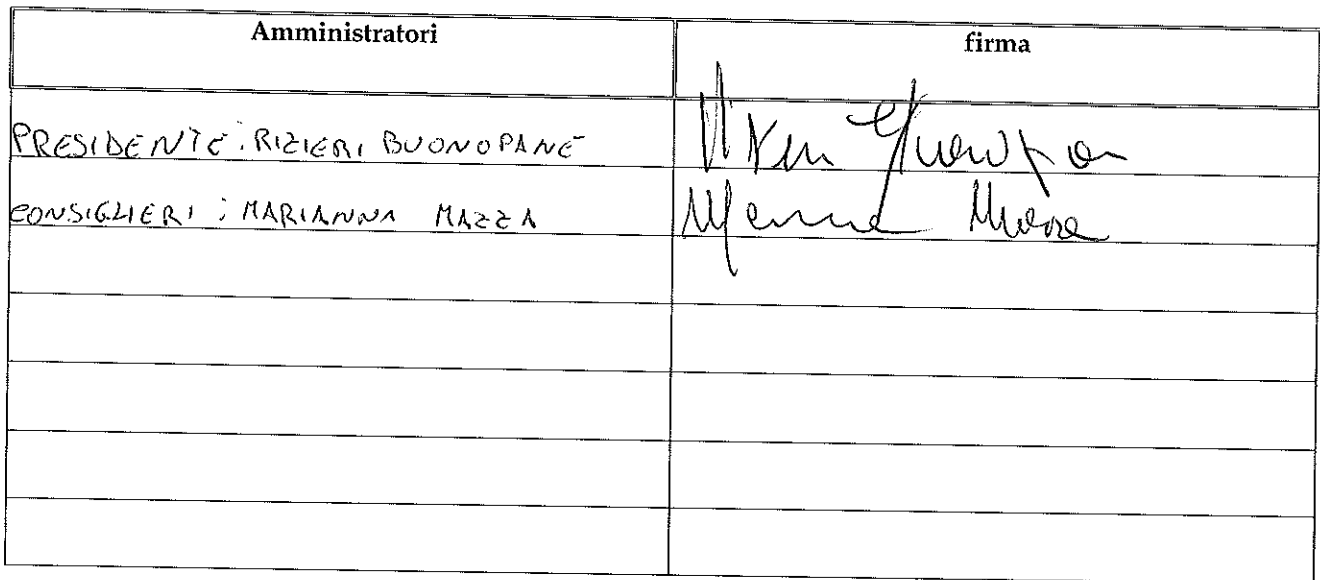 Amministratori firma
PRESIDENTE: RIZIERI BUONOPANE
CONSIGLIERI: MARIANNA MAZZA